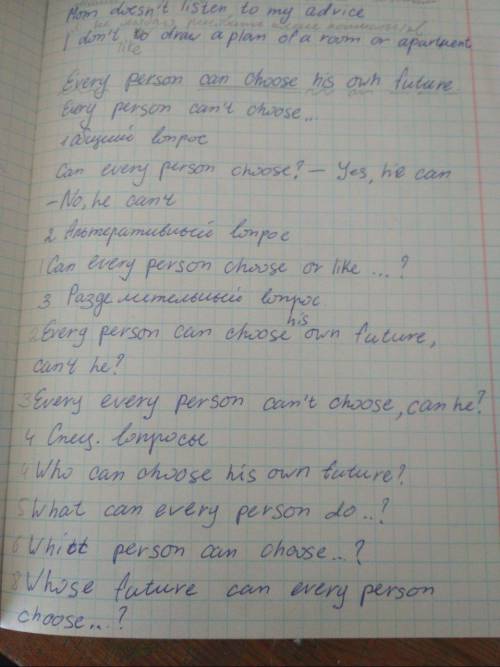 Mom doesn't listen to my advice
I don't to draw a plan of a room or apartment
like
Every person can choose his own future
Every person can't choose...
1 общий вопрос
Can every person choose? – Yes, he can
– No, he can't
2 Альтеративный вопрос
1 Can every person choose or like ...?
3 Разделительный вопрос
his
2 Every person can choose own future,
can't he?
3 Every every person can't choose, can he?
4 Спец. вопросы
4 Who can choose his own future?
5 What can every person do..?
6 person can choose..?
8 Whose future can every person
choose...?